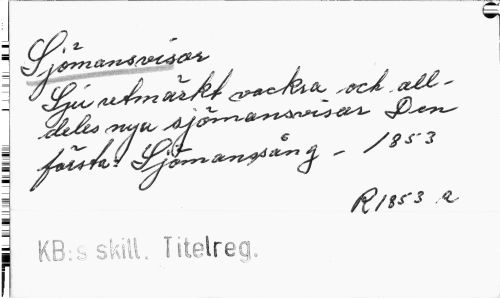 Sjömansvisor
Sju utmärkt vackra och all-
deles nya sjömansvisor Den
första: Sjömanssång - 1853
R 1853 a
KB:s skill. Titelreg.